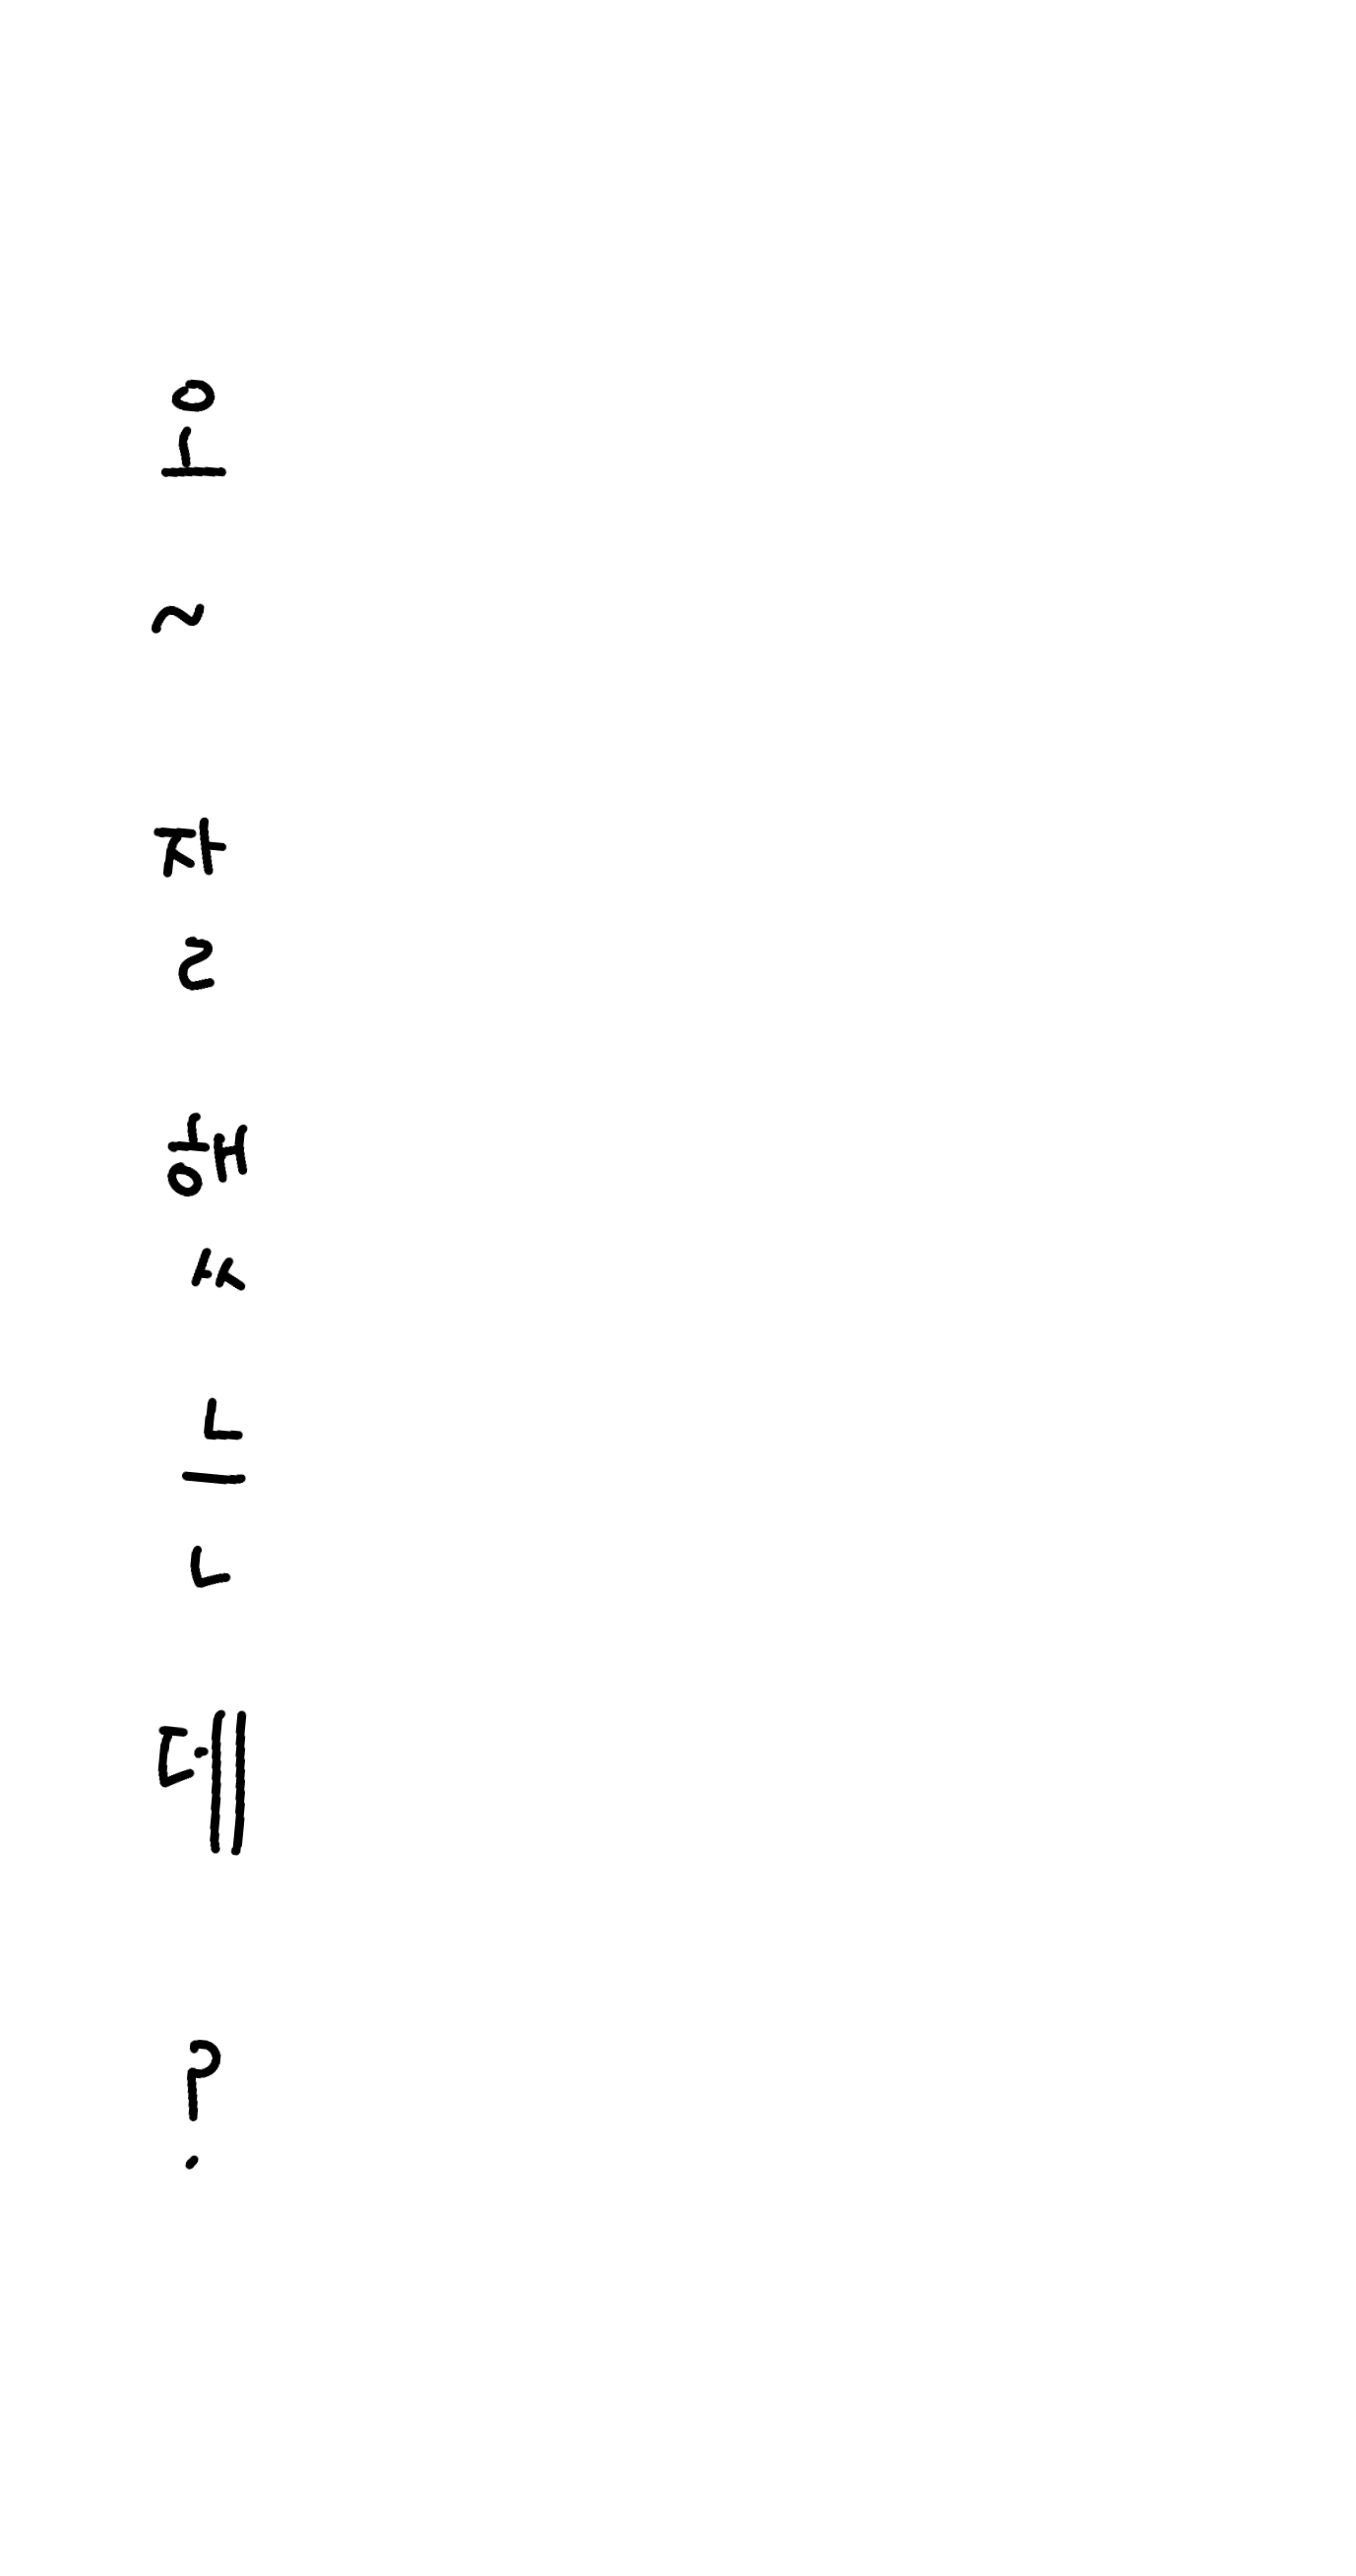 오~잘했는데?